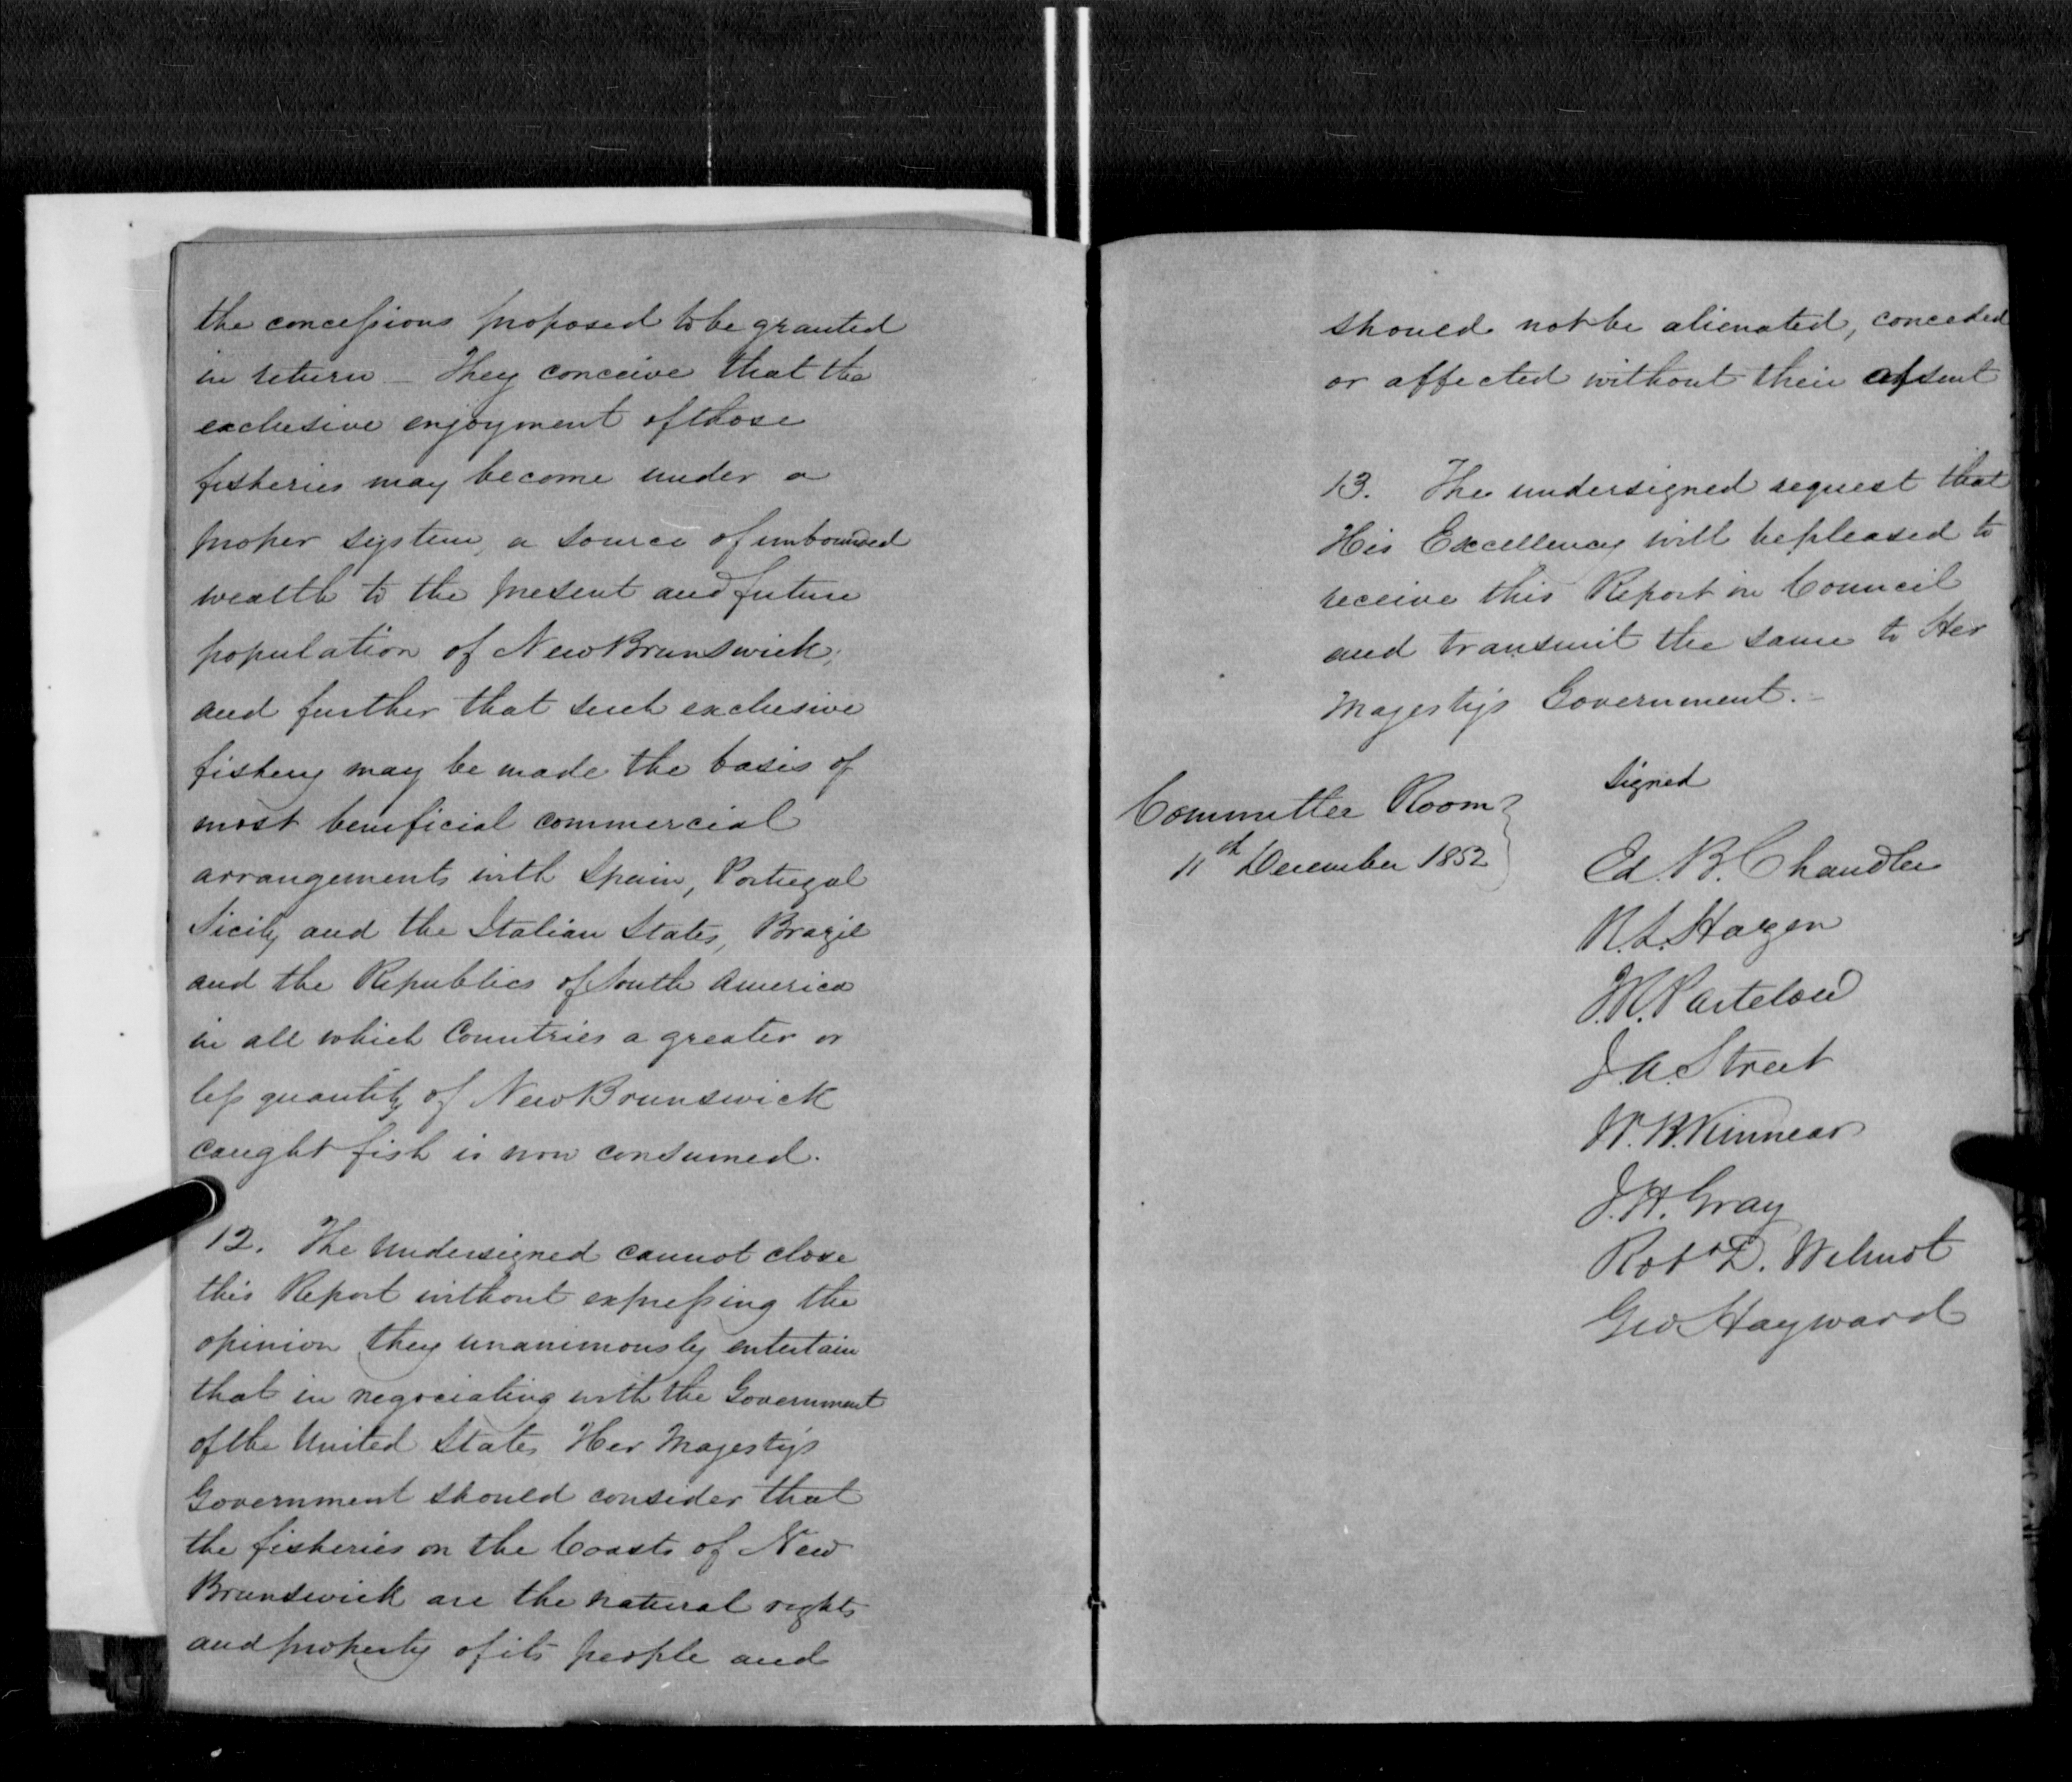 the concessions proposed to be granted
in return – They conceive that the
exclusive enjoyment of those
fisheries may become under a
proper system, a source of unbounded
wealth to the present and future
population of New Brunswick;
and further that such exclusive
fishery may be made the basis of
most beneficial commercial
arrangements with Spain, Portugal
Sicily and the Italian States, Brazil
and the Republics of South America
in all which Countries a greater or
less quantity of New Brunswick
caught fish is now consumed.
12. The Undersigned cannot close
this Report without expressing the
opinion they unanimously entertain
that in negociating with the Government
of the United States Her Majesty's
Government should consider that
the fisheries on the Coasts of New
Brunswick are the natural rights
and property of its people and
should not be alienated, conceded
or affected without their assent
13. The undersigned request that
His Excellency will be pleased to
receive this Report in Council
and transmit the same to Her
Majesty's Government. –
Signed
Committee Room
11th December 1852
Ed. B. Chandler
R. L. Hazen
J. R. Partelow
J. A. Street
W. B. Kinnear
J. H. Gray
Robt D. Wilmot
Geo Hayward